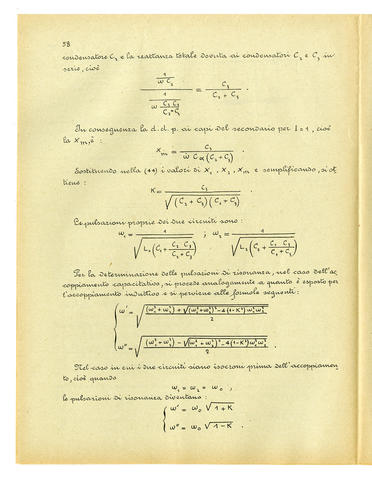 58
condensatore C₃ e la reattanza totale dovuta ai condensatori C₂ e C₃ in
serie, cioè
(1/(ω C₃)) / (1/(ω (C₂ C₃)/(C₂+C₃))) = C₂/(C₂ + C₃) .
In conseguenza la d.d.p. ai capi del secondario per I=1, cioè
la Xₘ, è :
Sostituendo nella (44) i valori di X₁ , X₂ , Xₘ e semplificando, si ot
tiene :
Le pulsazioni proprie dei due circuiti sono :
Per la determinazione delle pulsazioni di risonanza, nel caso dell'ac
coppiamento capacitativo, si procede analogamente a quanto è esposto per
l'accoppiamento induttivo e si perviene alle formole seguenti :
ω' = √(((ω₁² + ω₂²) + √((ω₁² + ω₂²)² - 4(1-K²) ω₁² ω₂²))/2)
ω" = √(((ω₁² + ω₂²) - √((ω₁² + ω₂²)² - 4(1-K²) ω₁² ω₂²))/2) .
Nel caso in cui i due circuiti siano isocroni prima dell'accoppiamen
to, cioè quando
ω₁ = ω₂ = ω₀ ,
le pulsazioni di risonanza diventano :
ω' = ω₀ √(1 + K)
ω" = ω₀ √(1 - K) .